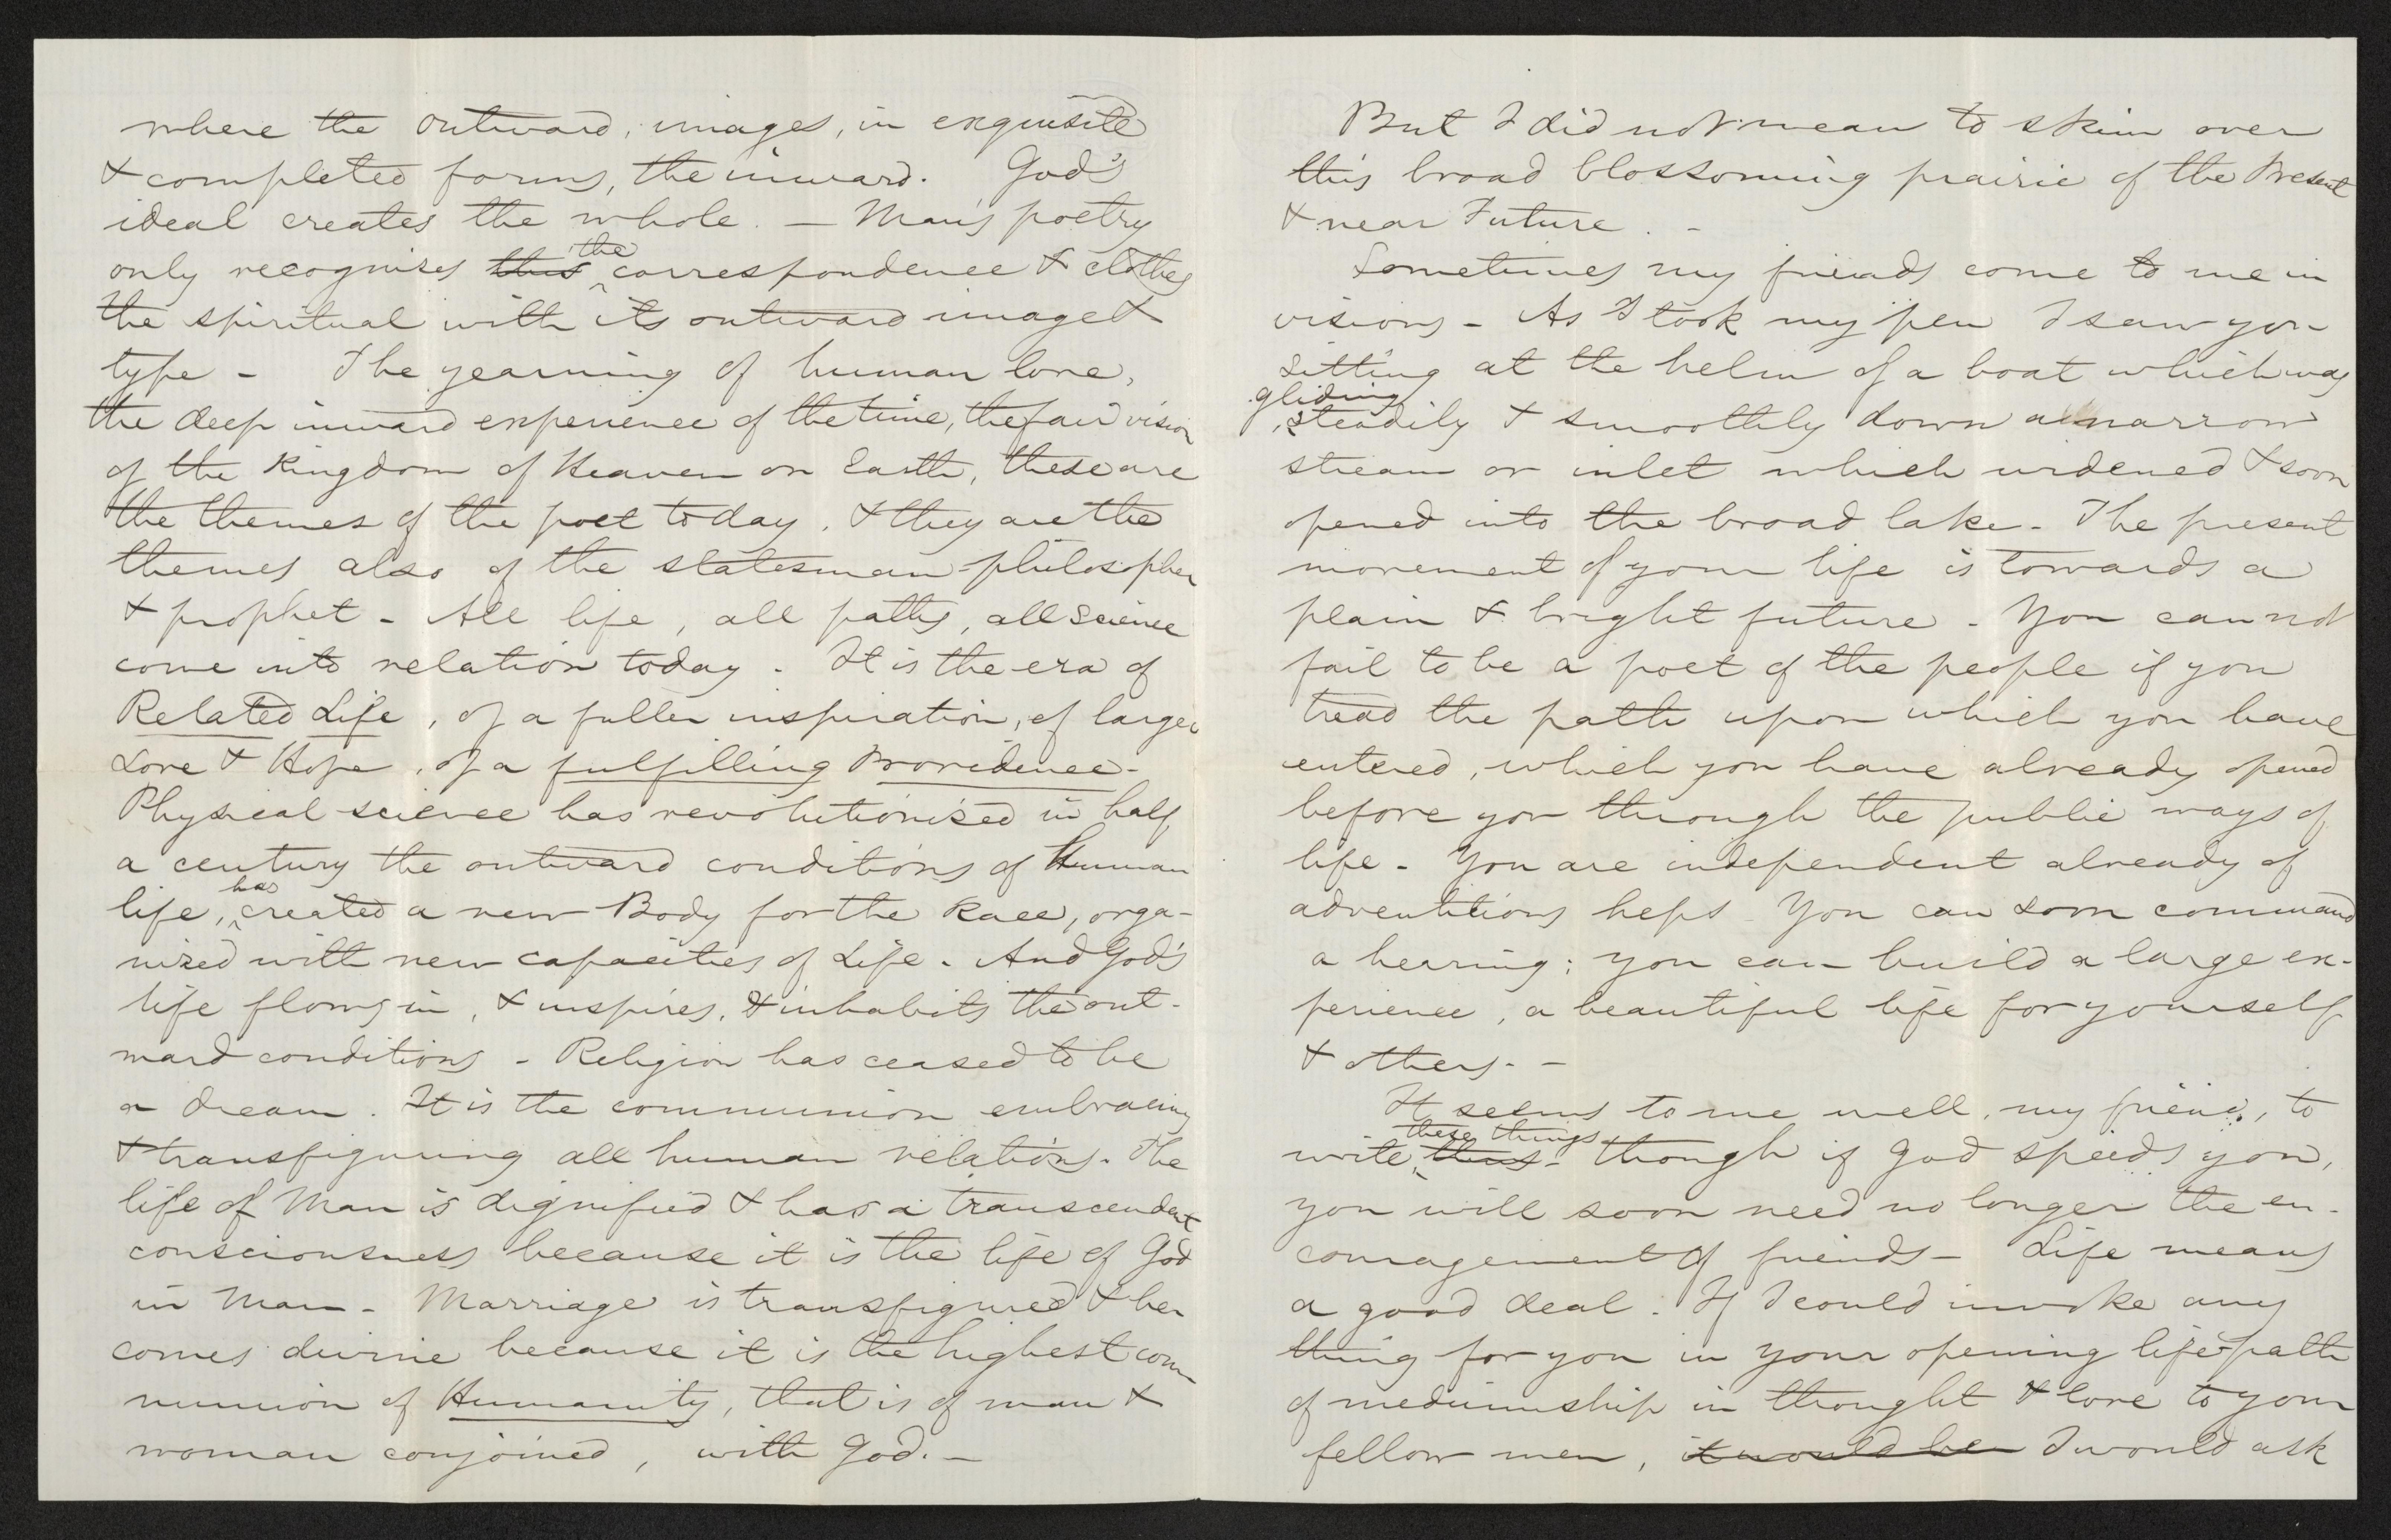 where the outward, images, in exquisite
& completed forms, the inward. God's
ideal creates the whole. — Man's poetry
only recognises this the correspondence & clothes
the spiritual with its outward image &
type - The yearning of human love,
the deep inward experience of the time, the fair vision
of the Kingdom of Heaven on Earth, these are
the themes of the poet today, & they are the
themes also of the statesman philosopher
& prophet - All life, all paths, all science
come into relation today. It is the era of
Related Life, of a fuller inspiration, of larger
Love & Hope, of a fulfilling Providence -
Physical science has revolutionized in half
a century the outward conditions of Human
life, has created a new Body for the Race, orga-
nized with new capacities of Life. And God's
life flows in, & inspires, & inhabits the out-
ward conditions - Religion has ceased to be
a dream. It is the communion embracing
& transfiguring all human relations. The
life of Man is dignified & has a transcendent
consciousness because it is the life of God
in Man - Marriage is transfigured & be
comes divine because it is the highest com
munion of Humanity, that is of man &
woman conjoined, with God. —
But I did not mean to skim over
this broad blossoming prairie of the Present
& near Future. -
Sometimes my friends come to me in
visions - As I took my pen I saw you
sitting at the helm of a boat which was
gliding
steadily & smoothly down a narrow
stream or inlet which widened & soon
opened into the broad lake - The present
movement of your life is towards a
plain & bright future - You can not
fail to be a poet of the people if you
tread the path upon which you have
entered, which you have already opened
before you through the public ways of
life - You are independent already of
adventitious heps You can soon command
a hearing; you can build a large ex-
perience, a beautiful life for yourself
& others - -
It seems to me well, my friend, to
write thus these things - though if God speeds you,
you will soon need no longer the en-
couragement of friends - Life means
a good deal. If I could invoke any
thing for you in your opening life-path
of mediumship in thought & love to your
fellow men, it would be I would ask